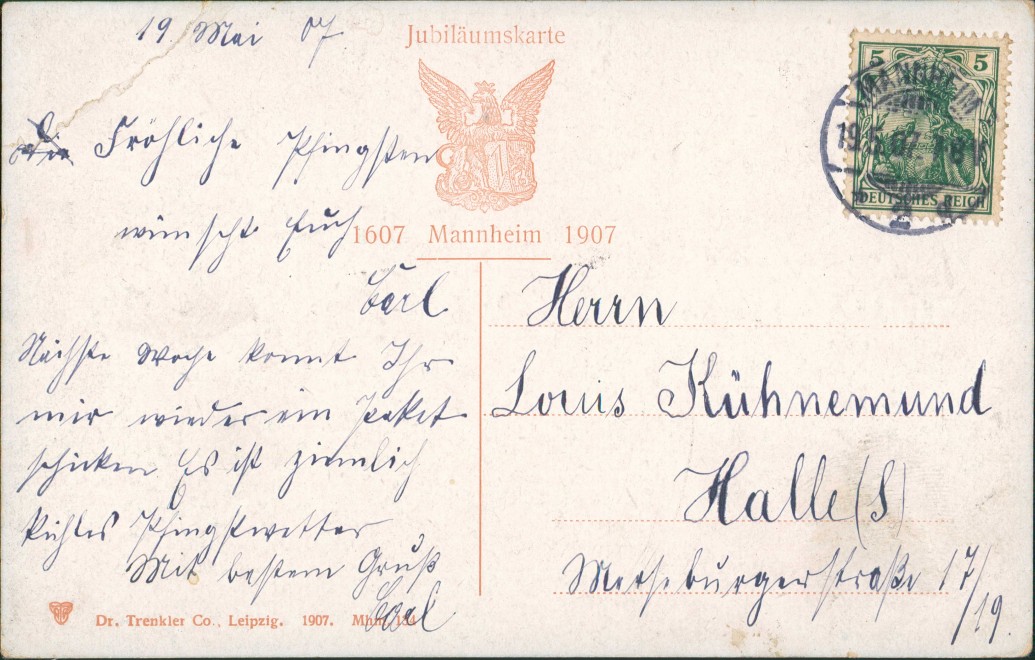 19. Mai 07.
Jubiläumskarte
Fröhliche Pfingsten
wünscht Euch
Carl
1607 Mannheim 1907
Nächste Woche konnt Ihr
mir wieder ein Paket
schicken Es ist ziemlich
kühles Pfingstwetter
Mit bestem Gruß
Carl
Dr. Trenkler Co., Leipzig. 1907. Mhm. 134
5 5
MANNHEIM
19.5.07.
2
DEUTSCHES REICH
Herrn
Louis Kühnemund
Halle (S)
Merseburgerstraße 17/19